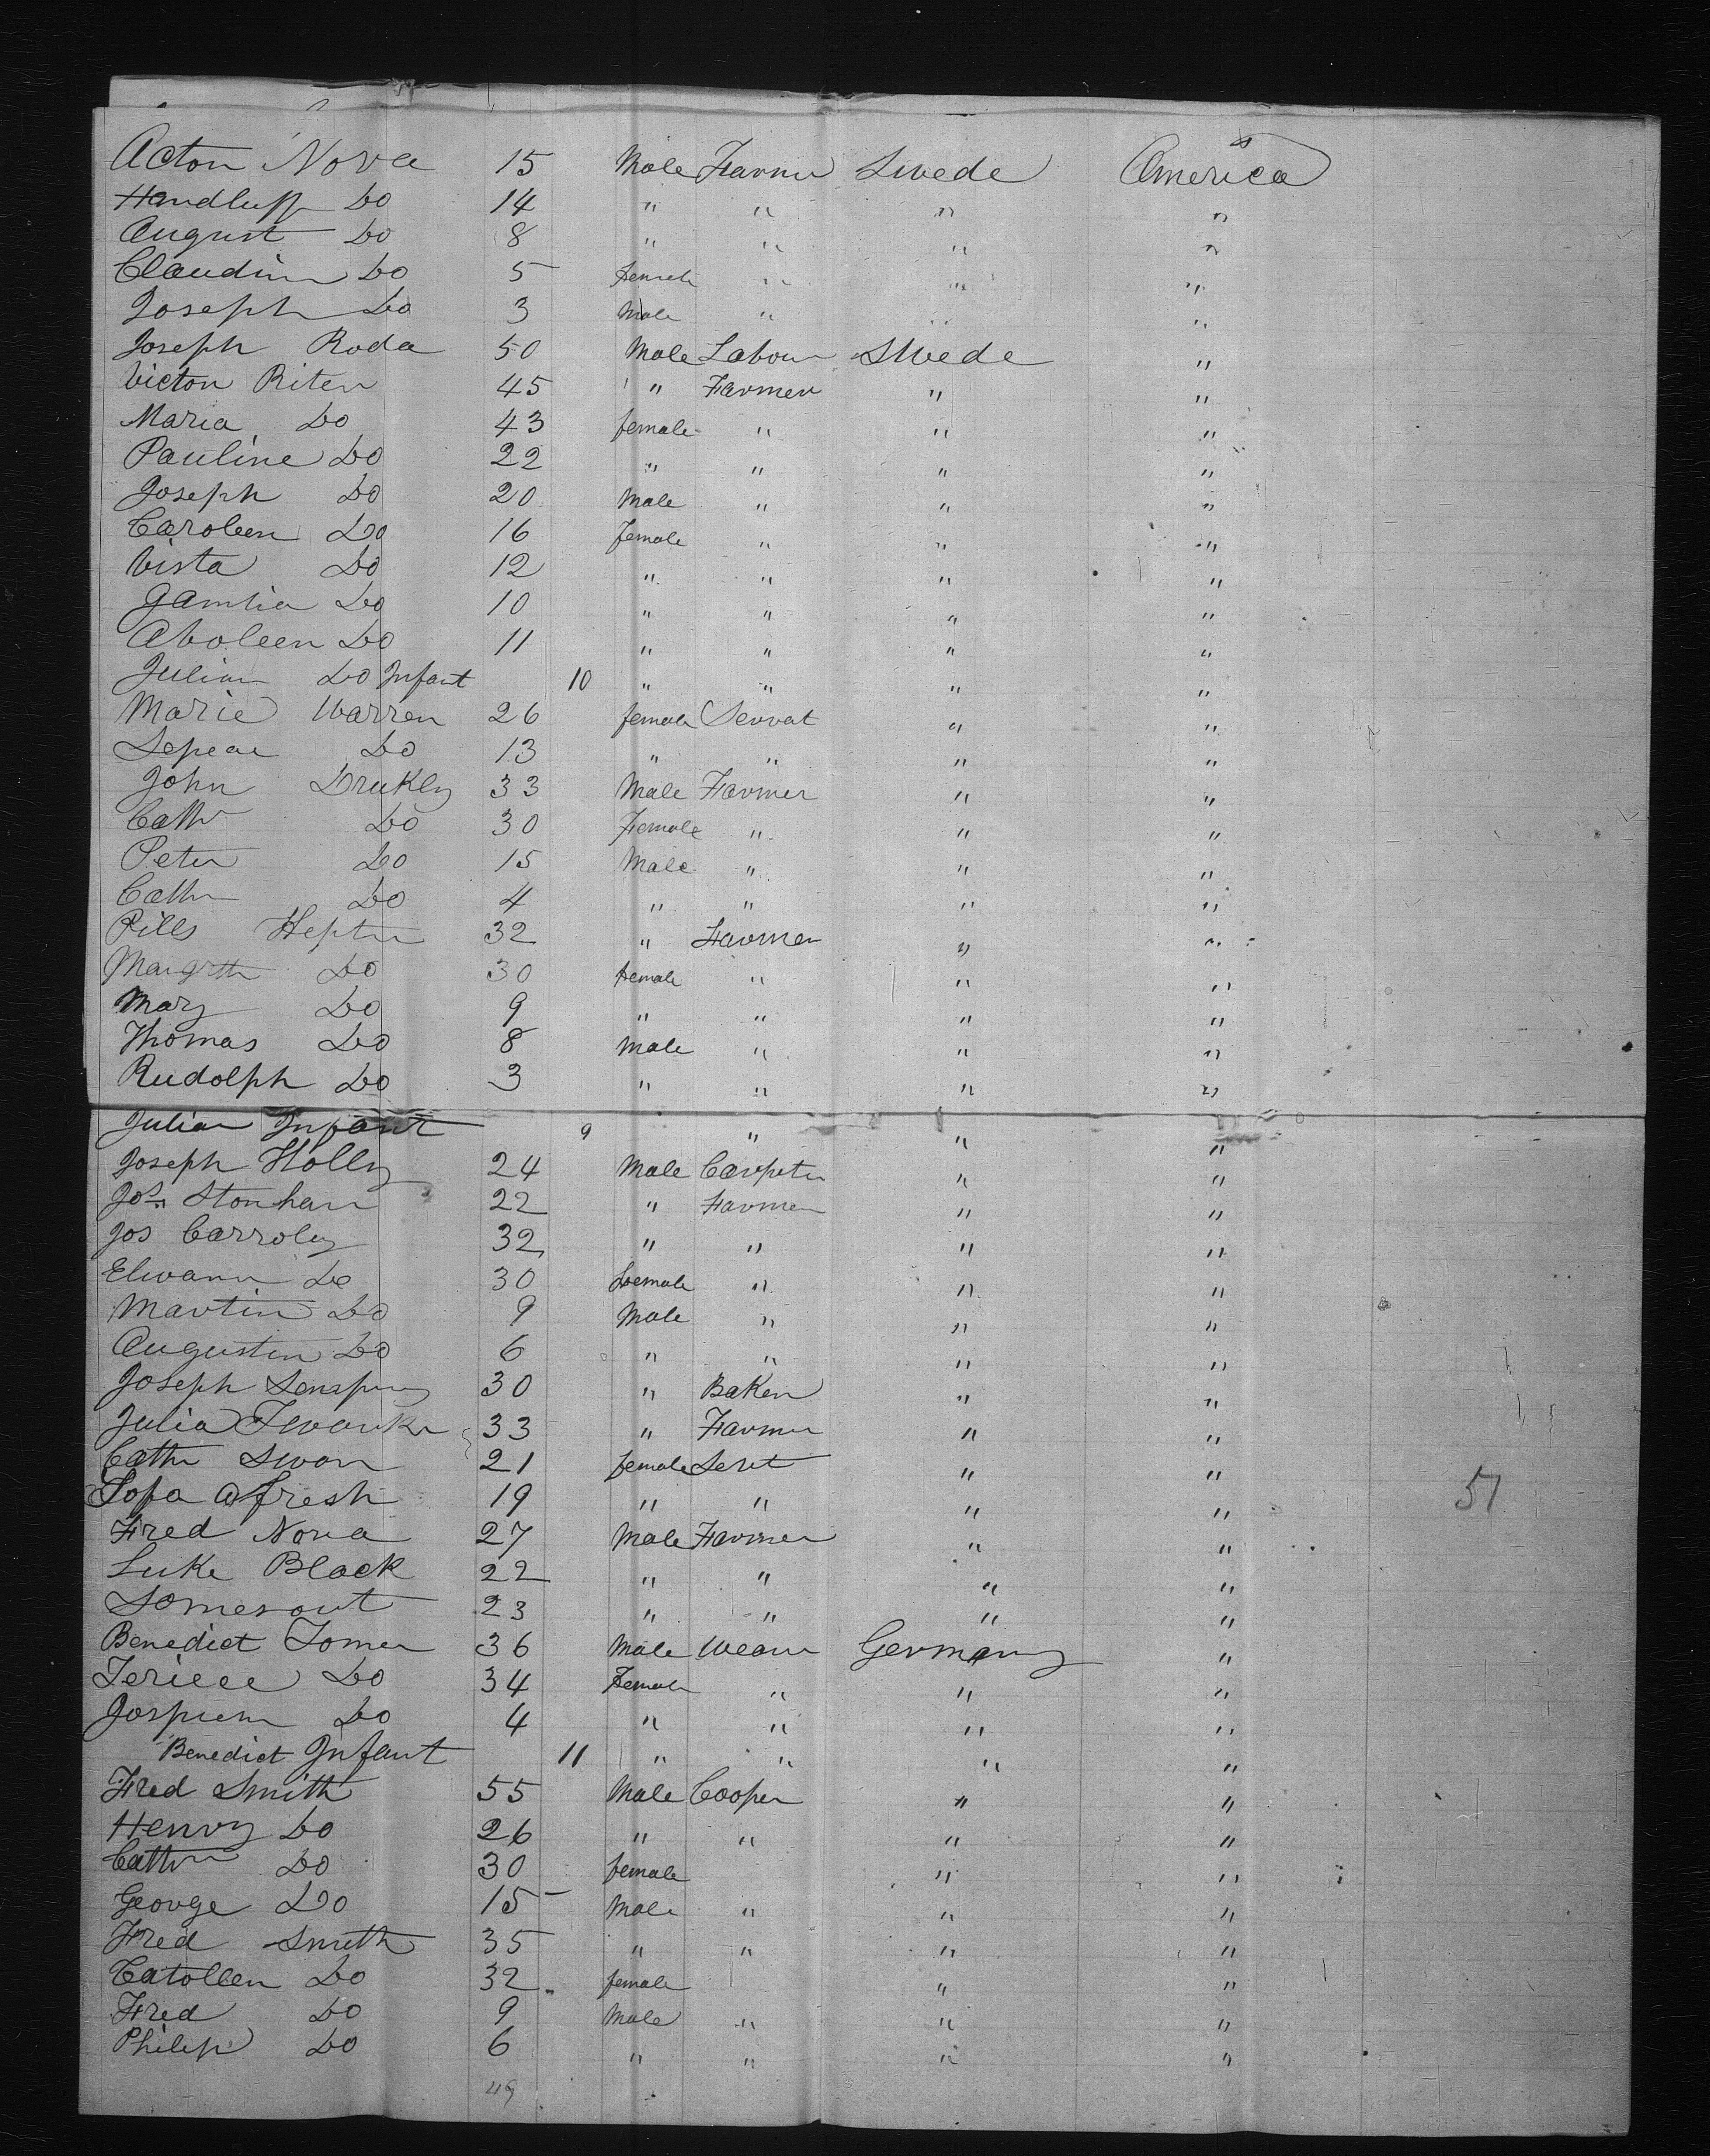 Acton Nova 15 Male Farmer Swede America
Handluff Do 14 " " " "
August Do 8 " " " "
Claudin Do 5 female " " "
Joseph Do 3 Male " " "
Joseph Roda 50 Male Labour Swede "
Victon Riten 45 " Farmer " "
Maria Do 43 female " " "
Pauline Do 22 " " " "
Joseph Do 20 Male " " "
Caroleen Do 16 Female " " "
Vista Do 12 " " " "
Do 10 " " " "
Aboleen Do 11 " " " "
Julian Do Infant 10 " " " "
Marie Warren 26 female Servat " "
Sepear Do 13 " " " "
John Drukly 33 Male Farmer " "
Cathr Do 30 Female " " "
Peter Do 15 Male " " "
Cathr Do 4 " " " "
Pills Heptur 32 " Farmer " "
Margrth Do 30 female " " "
Mary Do 9 " " " "
Thomas Do 8 Male " " "
Rudolph Do 3 " " " "
Julian Infant 9 " " "
Joseph Holly 24 Male Carpeter " "
Jos Stonham 22 " Farmer " "
Jos Carroley 32 " " " "
Elwann Do 30 Female " " "
Martin Do 9 Male " " "
Augustin Do 6 " " " "
Joseph 30 " Baker " "
Julia 33 " Farmer " "
Cathr Swan 21 female Servt " "
Sofa Afresh 19 " " " " 51
Fred Nova 27 Male Farmer " "
Luke Black 22 " " " "
Somerout 23 " " " "
Benedict Tomer 36 Male Weavr Germany "
Teriece Do 34 Female " " "
Jospiem Do 4 " " " "
Benedict Infant 11 " " " "
Fred Smith 55 Male Cooper " "
Henry Do 26 " " " "
Cathr Do 30 female " "
George Do 15 Male " " "
Fred Smith 35 " " " "
Catollen Do 32 female " "
Fred Do 9 Male " " "
Philip Do 6 " " " "
49